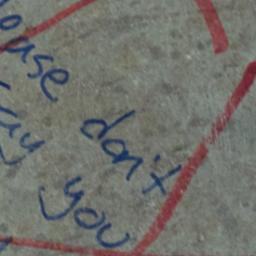 ouse don't
ay you